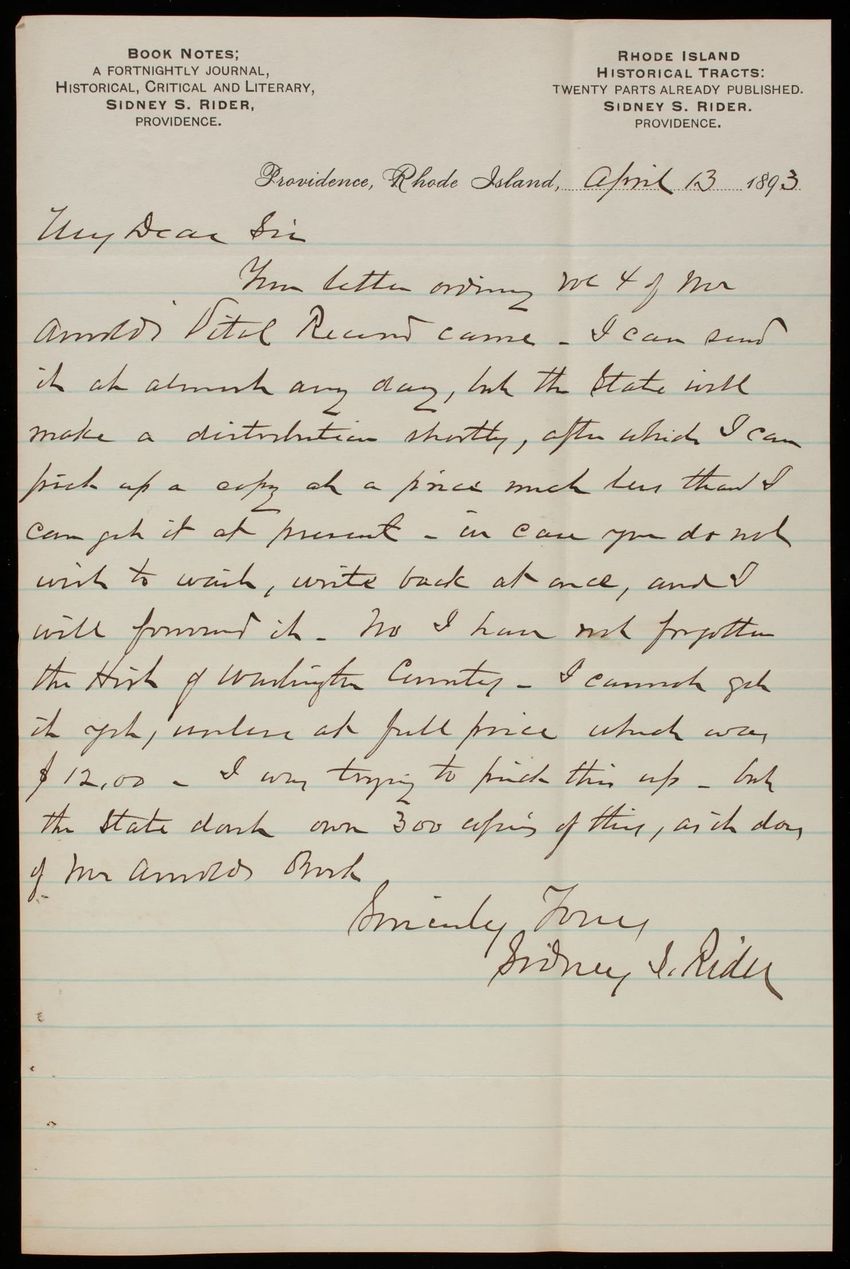 BOOK NOTES;
A FORTNIGHTLY JOURNAL,
HISTORICAL, CRITICAL AND LITERARY,
SIDNEY S. RIDER,
PROVIDENCE.
RHODE ISLAND
HISTORICAL TRACTS:
TWENTY PARTS ALREADY PUBLISHED.
SIDNEY S. RIDER.
PROVIDENCE.
Providence, Rhode Island, April 13 1893
My Dear Sir
Your letter ordering vol 4 of Mr
Arnolds Vital Record came - I can send
it at almost any day, but the State will
make a distribution shortly, after which I can
pick up a copy at a price much less than I
can get it at present - in case you do not
wish to wait, write back at once, and I
will forward it - No I have not forgotten
the Hist of Washington County - I cannot get
it yet, unless at full price which was
$12.00 - I was trying to pick this up - but
the State dont own 300 copies of this, as it does
of Mr Arnolds Book
Sincerely Yours
Sidney S. Rider